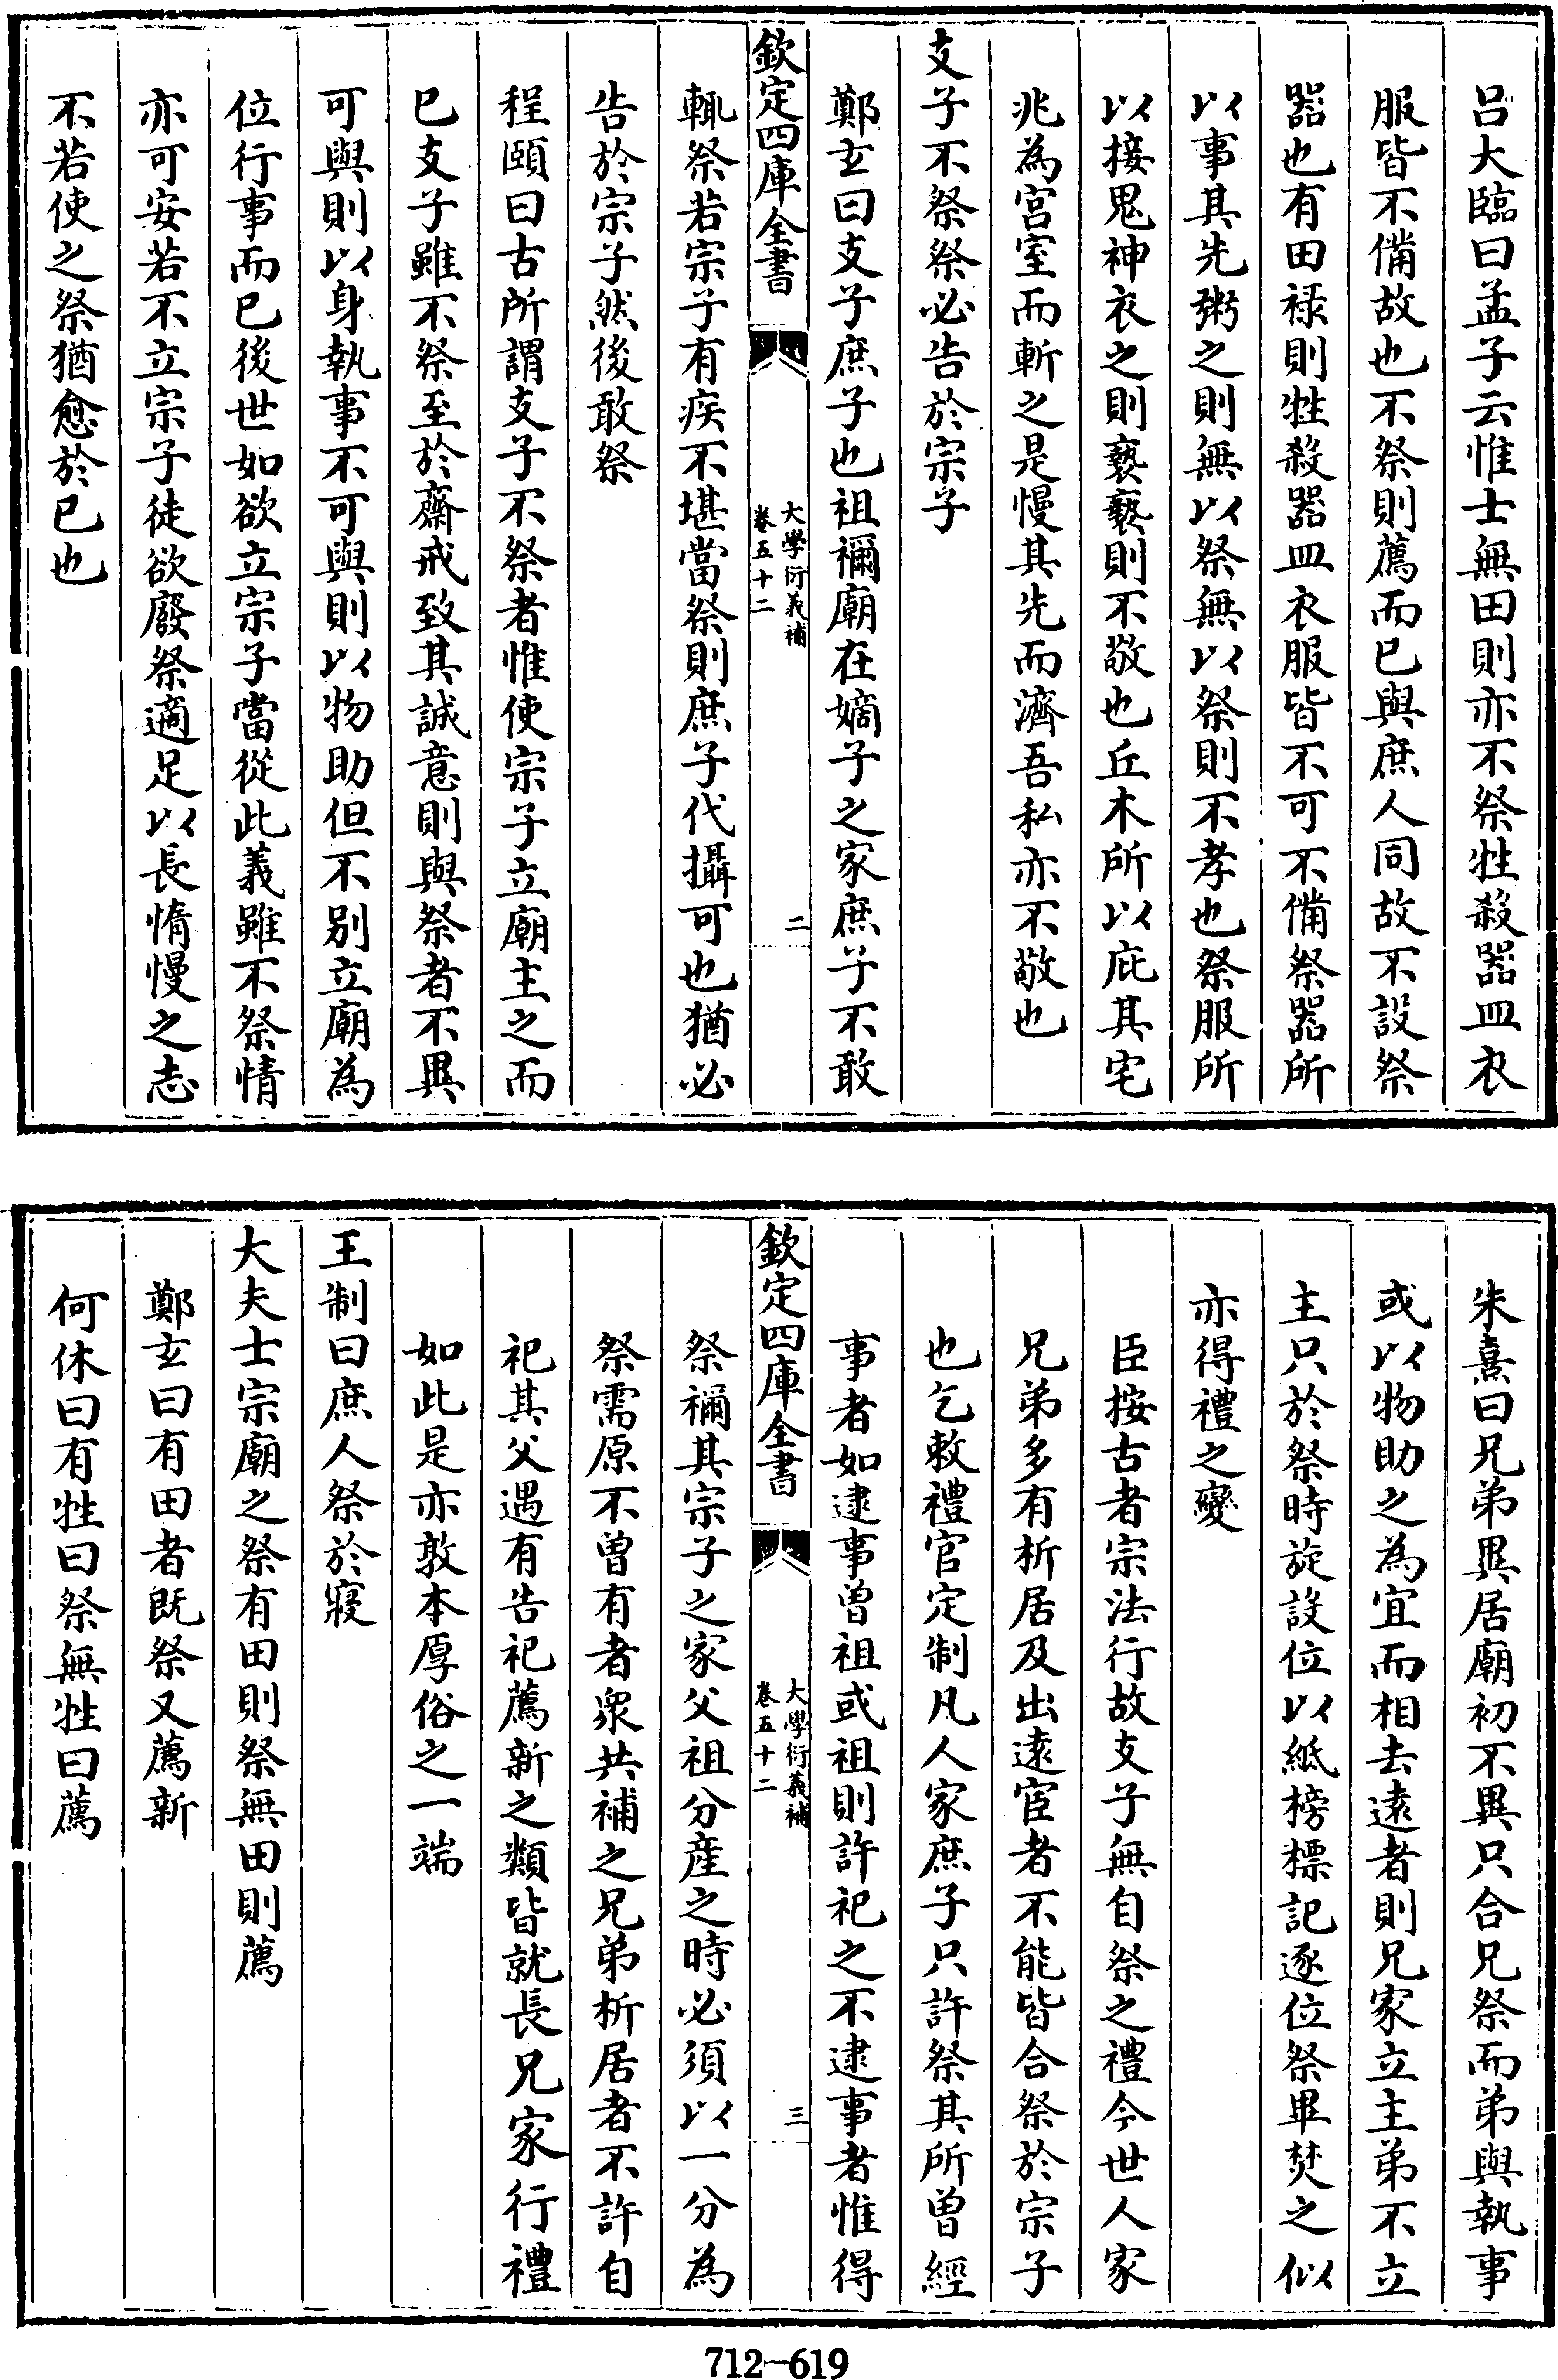 呂大臨曰孟子云惟士無田則亦不祭牲殺器皿衣
服皆不備故也不祭則薦而已與庶人同故不設祭
器也有田祿則牲殺器皿衣服皆不可不備祭器所
以事其先粥之則無以祭無以祭則不孝也祭服所
以接鬼神衣之則褻褻則不敬也丘木所以庇其宅
兆為宮室而斬之是慢其先而濟吾私亦不敬也
支子不祭祭必告於宗子
鄭玄曰支子庶子也祖禰廟在嫡子之家庶子不敢
欽定四庫全書
大學衍義補
卷五十二
二
輒祭若宗子有疾不堪當祭則庶子代攝可也猶必
告於宗子然後敢祭
程頤曰古所謂支子不祭者惟使宗子立廟主之而
已支子雖不祭至於齋戒致其誠意則與祭者不異
可與則以身執事不可與則以物助但不别立廟為
位行事而已後世如欲立宗子當從此義雖不祭情
亦可安若不立宗子徒欲廢祭適足以長惰慢之志
不若使之祭猶愈於已也
朱熹曰兄弟異居廟初不異只合兄祭而弟與執事
或以物助之為宜而相去遠者則兄家立主弟不立
主只於祭時旋設位以紙榜標記逐位祭畢焚之似
亦得禮之變
臣按古者宗法行故支子無自祭之禮今世人家
兄弟多有析居及出遠宦者不能皆合祭於宗子
也乞敕禮官定制凡人家庶子只許祭其所曾經
事者如逮事曾祖或祖則許祀之不逮事者惟得
欽定四庫全書
大學衍義補
卷五十二
三
祭禰其宗子之家父祖分產之時必須以一分為
祭需原不曾有者衆共補之兄弟析居者不許自
祀其父遇有告祀薦新之類皆就長兄家行禮
如此是亦敦本厚俗之一端
王制曰庶人祭於寢
大夫士宗廟之祭有田則祭無田則薦
鄭玄曰有田者既祭又薦新
何休曰有牲曰祭無牲曰薦
712-619